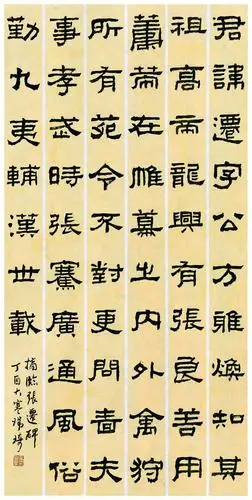 君諱遷字公方雅煥知其
祖高帝龍興有張良善用
籌策在帷幕之内外禽狩
所有苑令不對更問嗇夫
事孝武時張騫廣通風俗
勤九夷輔漢世載
摘臨張遷碑
丁酉大寒